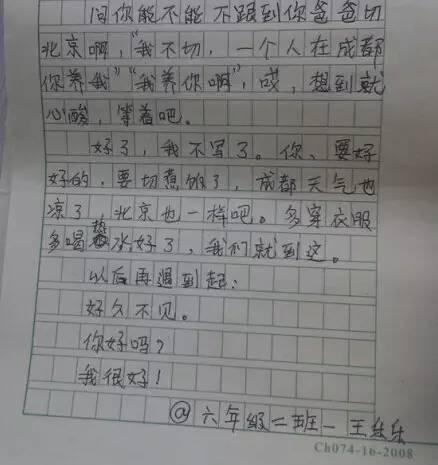 问你能不能不跟到你爸爸切
北京啊,“我不切,一个人在成都
你养我”“我养你啊”,哎,想到就
心酸,等着吧。
好了,我不写了。你、要好
好的,要切惹的了,成都天气也
凉了,北京也一样吧。多穿衣服
多喝热水好了,我们就到这。
以后再遇到起:
好久不见。
你好吗?
我很好!
@六年级二班一王乐乐
Ch074-16-2008